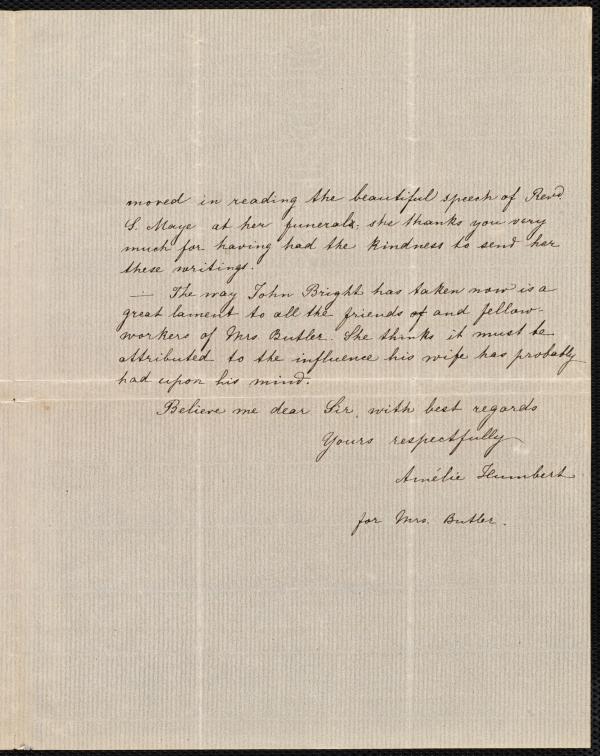 moved in reading the beautiful speech of Revd.
S. Maye at her funerals; she thanks you very
much for having had the kindness to send her
these writings.
— The way John Bright has taken now is a
great lament to all the friends of and fellow-
workers of Mrs. Butler. She thinks it must be
attributed to the influence his wife has probably
had upon his mind.
Believe me dear Sir, with best regards
Yours respectfully
Amélie Humbert
for Mrs. Butler.